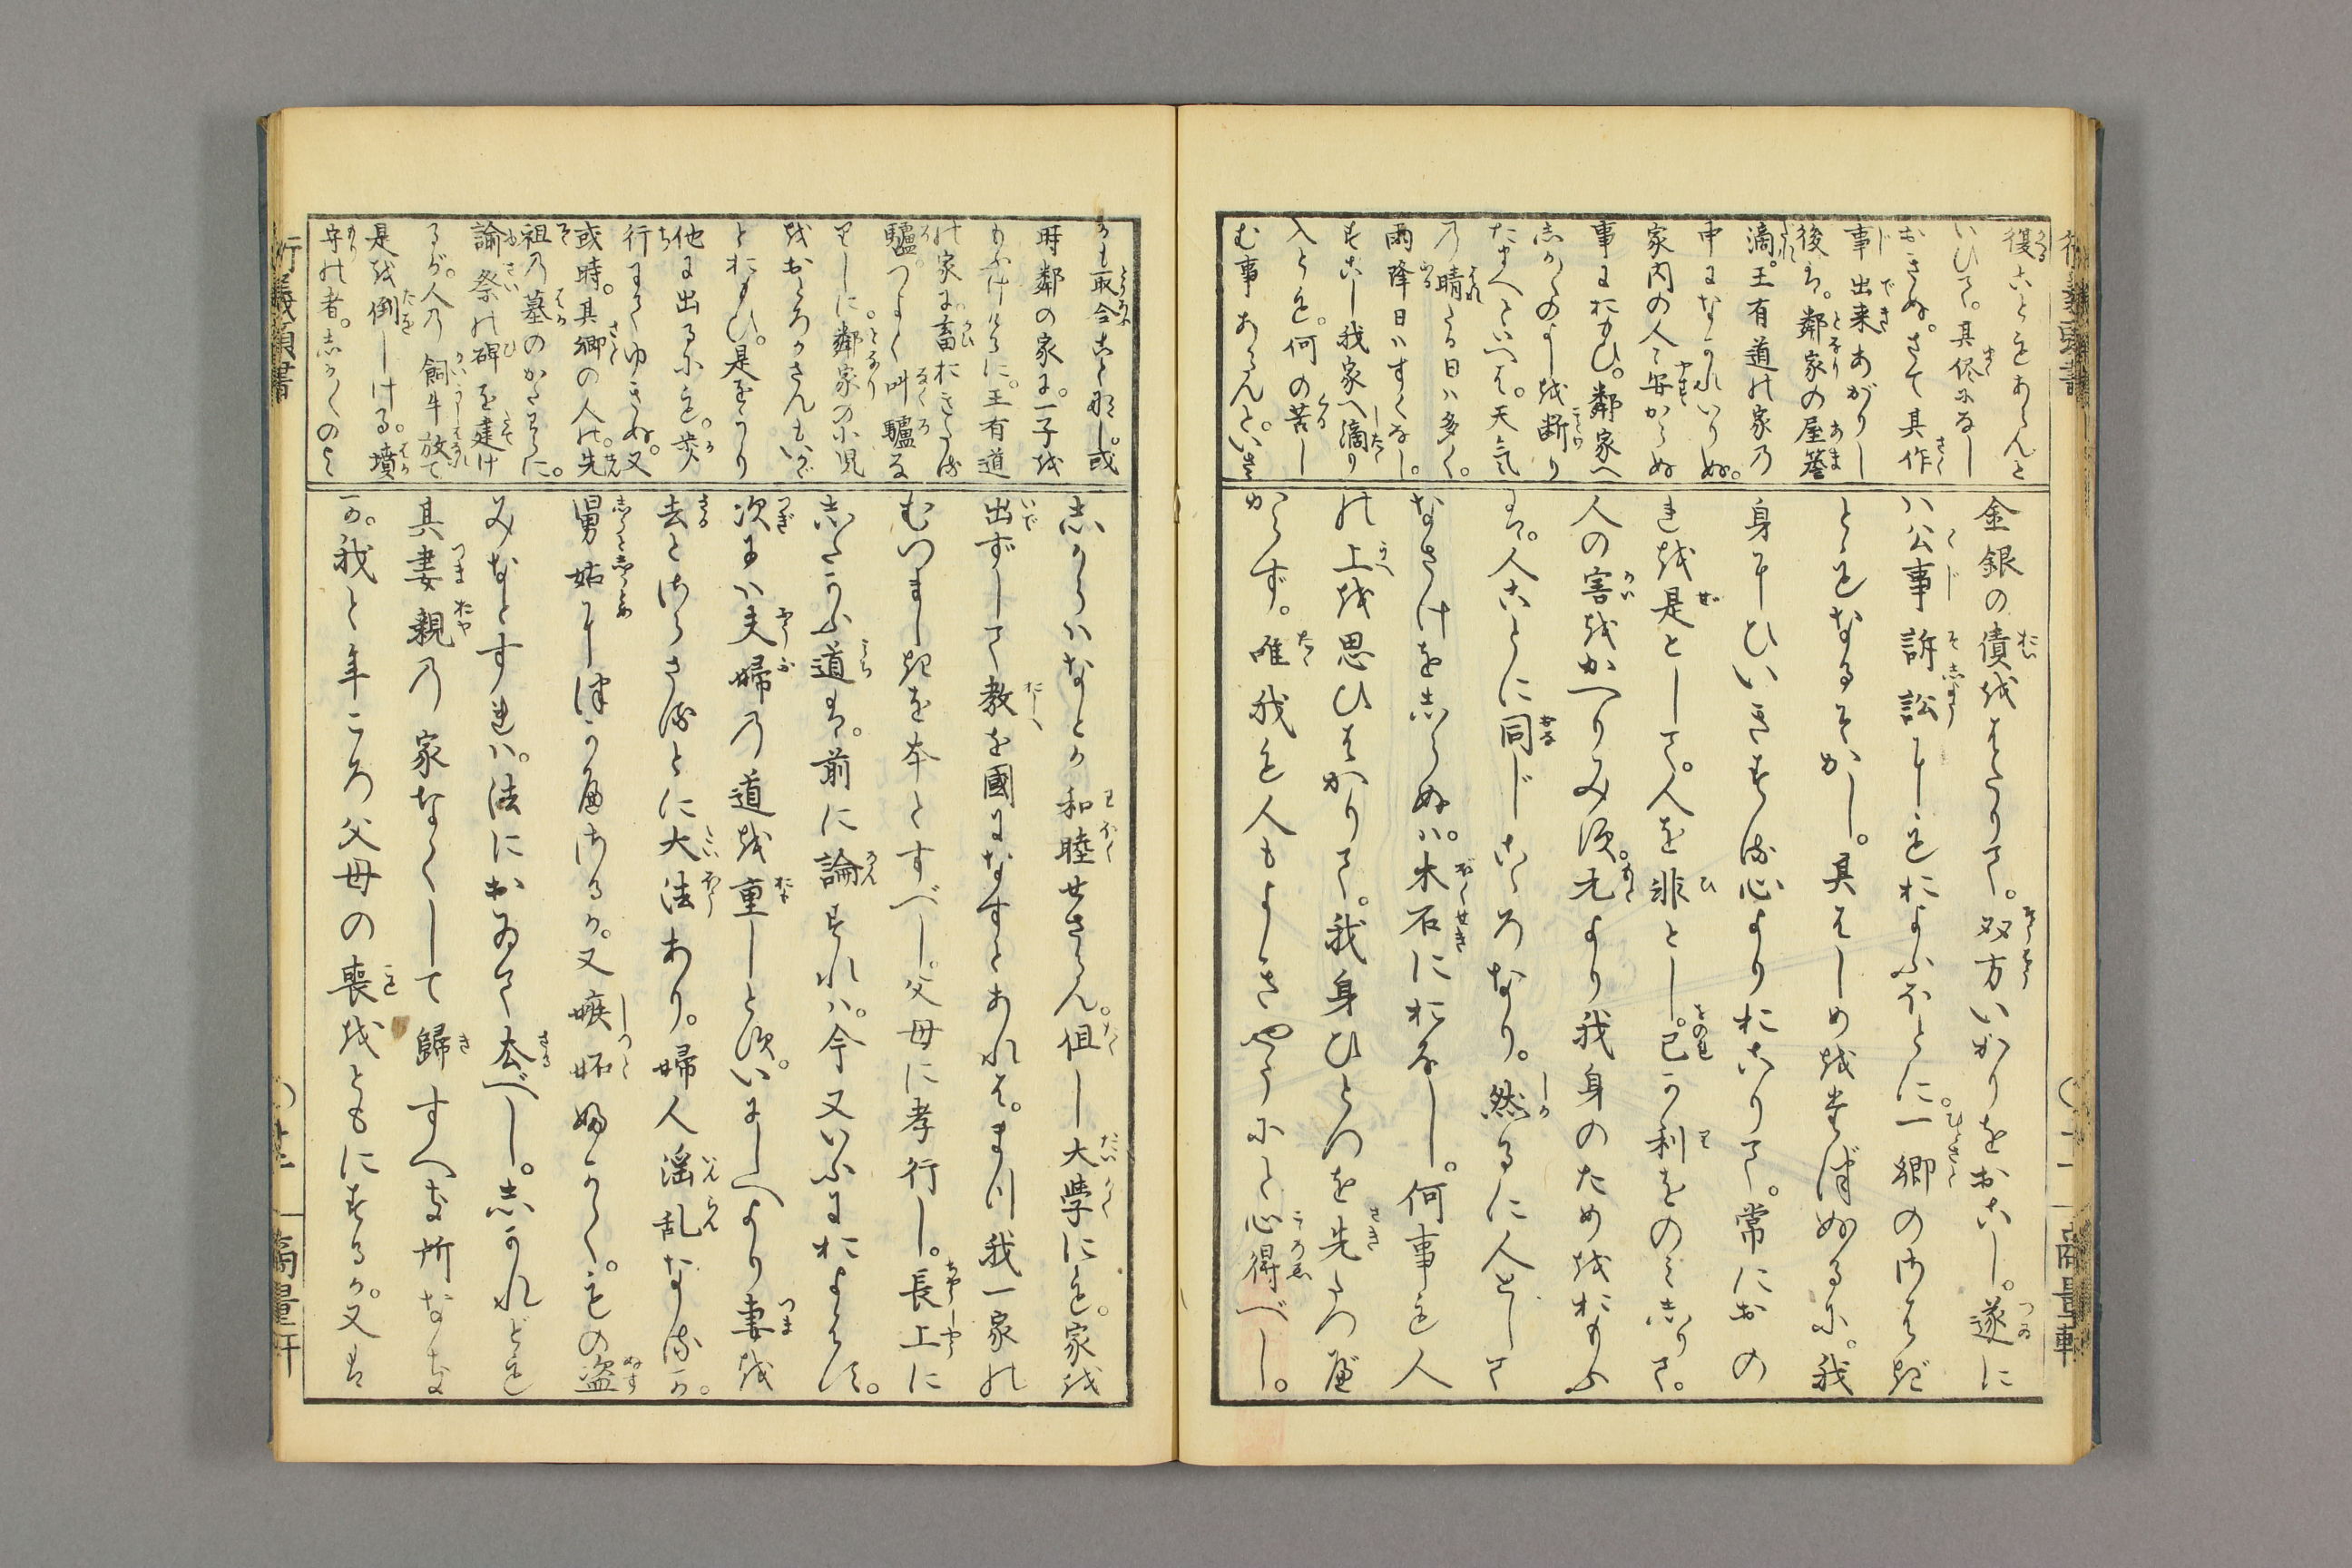 復ることもあらんと
いひて。其侭になし
おきぬ。さて其作
事出来あがりし
後は。鄰家の屋簷
滴。王有道の家乃
中になかれいりぬ。
家内の人々安からぬ
事におもひ。鄰家へ
しか〳〵のよしを断り
たまへといへは。天気
乃晴たる日ハ多く。
雨降日ハすくなし。
もとより我家へ滴り
入とも。何の苦し
む事あらんと。いは
金銀の債をはたりて。双方いかりをおこし。遂に
ハ公事訴訟にもおよふほとに。一郷のさはぎ
ともなるぞかし。其はしめをたづぬるに。我
身にひいきする心よりおこりて。常におの
れを是として。人を非とし。己が利をのみしりて。
人の害をかへりみず。元より我身のためをおもふ
は。人ことに同じこころなり。然るに人として
なさけをしらぬハ。木石におなし。何事も人
の上を思ひはかりて。我身ひとつを先たつべ
からず。唯我も人もよきやうにと心得べし。
時鄰の家に。一子を
まふけけるに。王有道
の家に畜おきたる
驢。つよく叫驢な
りしに。鄰家の小児
をおとろかさんもいかゞ
とおもひ。是をうり
他に出るにも。歩
行にてゆきぬ。又
或時。其郷の人の。先
祖乃墓のかたはらに。
諭祭の碑を建け
るが。人乃飼牛放て
是を倒しける。墳
守の者。しか〳〵のよ
しからハなとか和睦せさらん。但し大学にも。家を
出ずして教を國になすとあれは。まつ我一家の
むつましきを本とすべし。父母に孝行し。長上に
したかふ道は。前に論すれハ。今又いふにおよはず。
次にハ夫婦乃道を重しとす。いにしへより妻を
去とさらさるとに大法あり。婦人淫乱なるか。
舅姑につかへさるか。又嫉妬ふかく。もの盗
みなとすれハ。法におゐて去べし。しかれども
其妻親乃家なくして歸すへき所なき
か。我と年ころ父母の喪をともにするか。又は